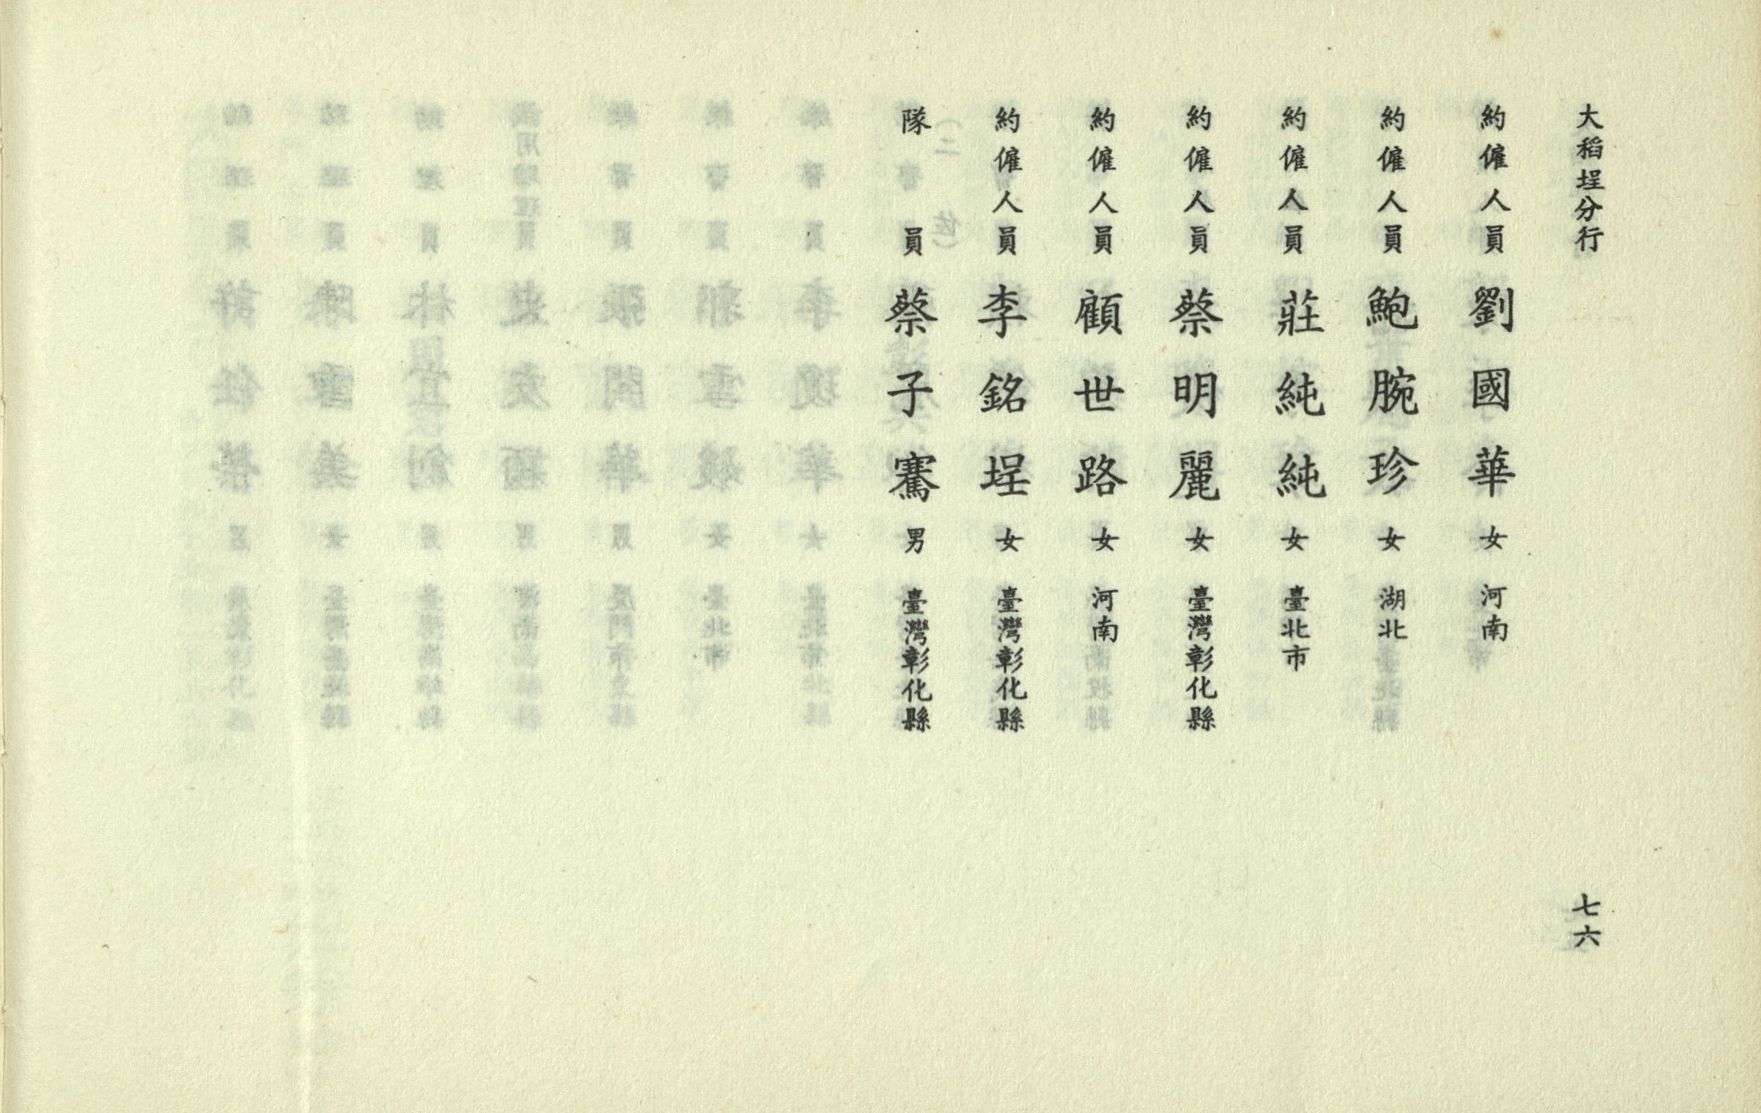 大稻埕分行
七六
約僱人員 劉國華 女 河南
約僱人員 鮑腕珍 女 湖北
約僱人員 莊純純 女 臺北市
約僱人員 蔡明麗 女 臺灣彰化縣
約僱人員 顧世路 女 河南
約僱人員 李銘埕 女 臺灣彰化縣
隊員 蔡子騫 男 臺灣彰化縣